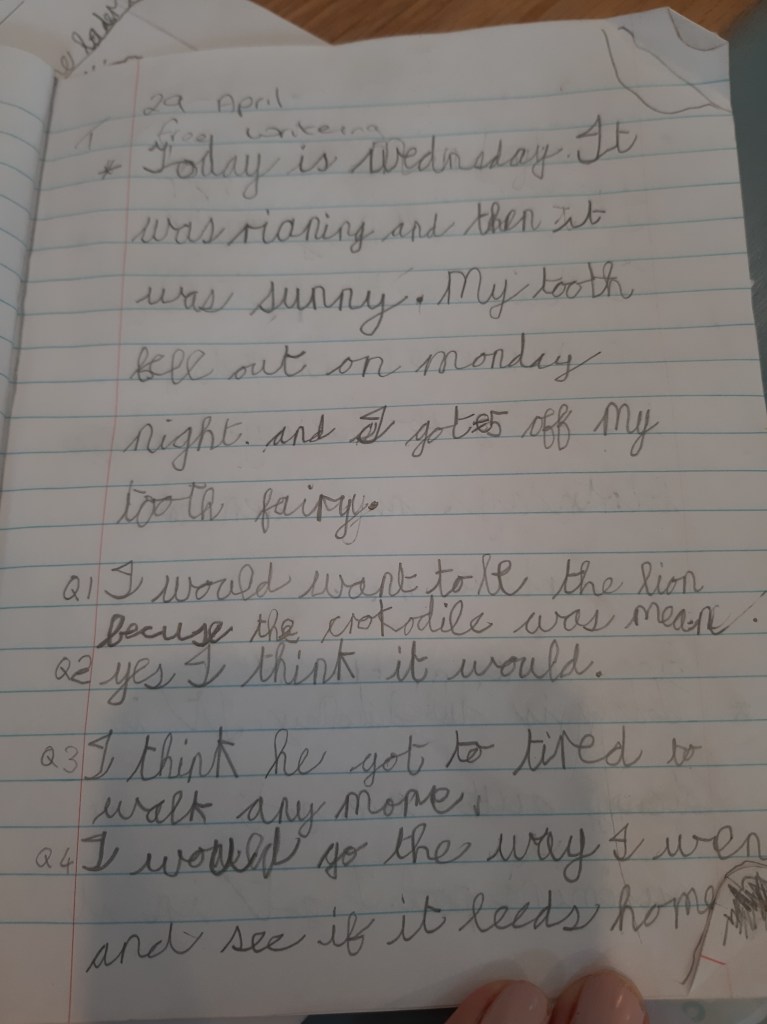 29 April
free writeing
* Today is Wednesday. It
was rianing and then it
was sunny. My tooth
fell out on monday
night. and I got €5 off My
tooth fairy.
Q1 I would want to be the lion
becuse the crokodile was mean.
Q2 yes I think it would.
Q3 I think he got to tired to
walk any more.
Q4 I would go the way I wen
and see if it leeds home